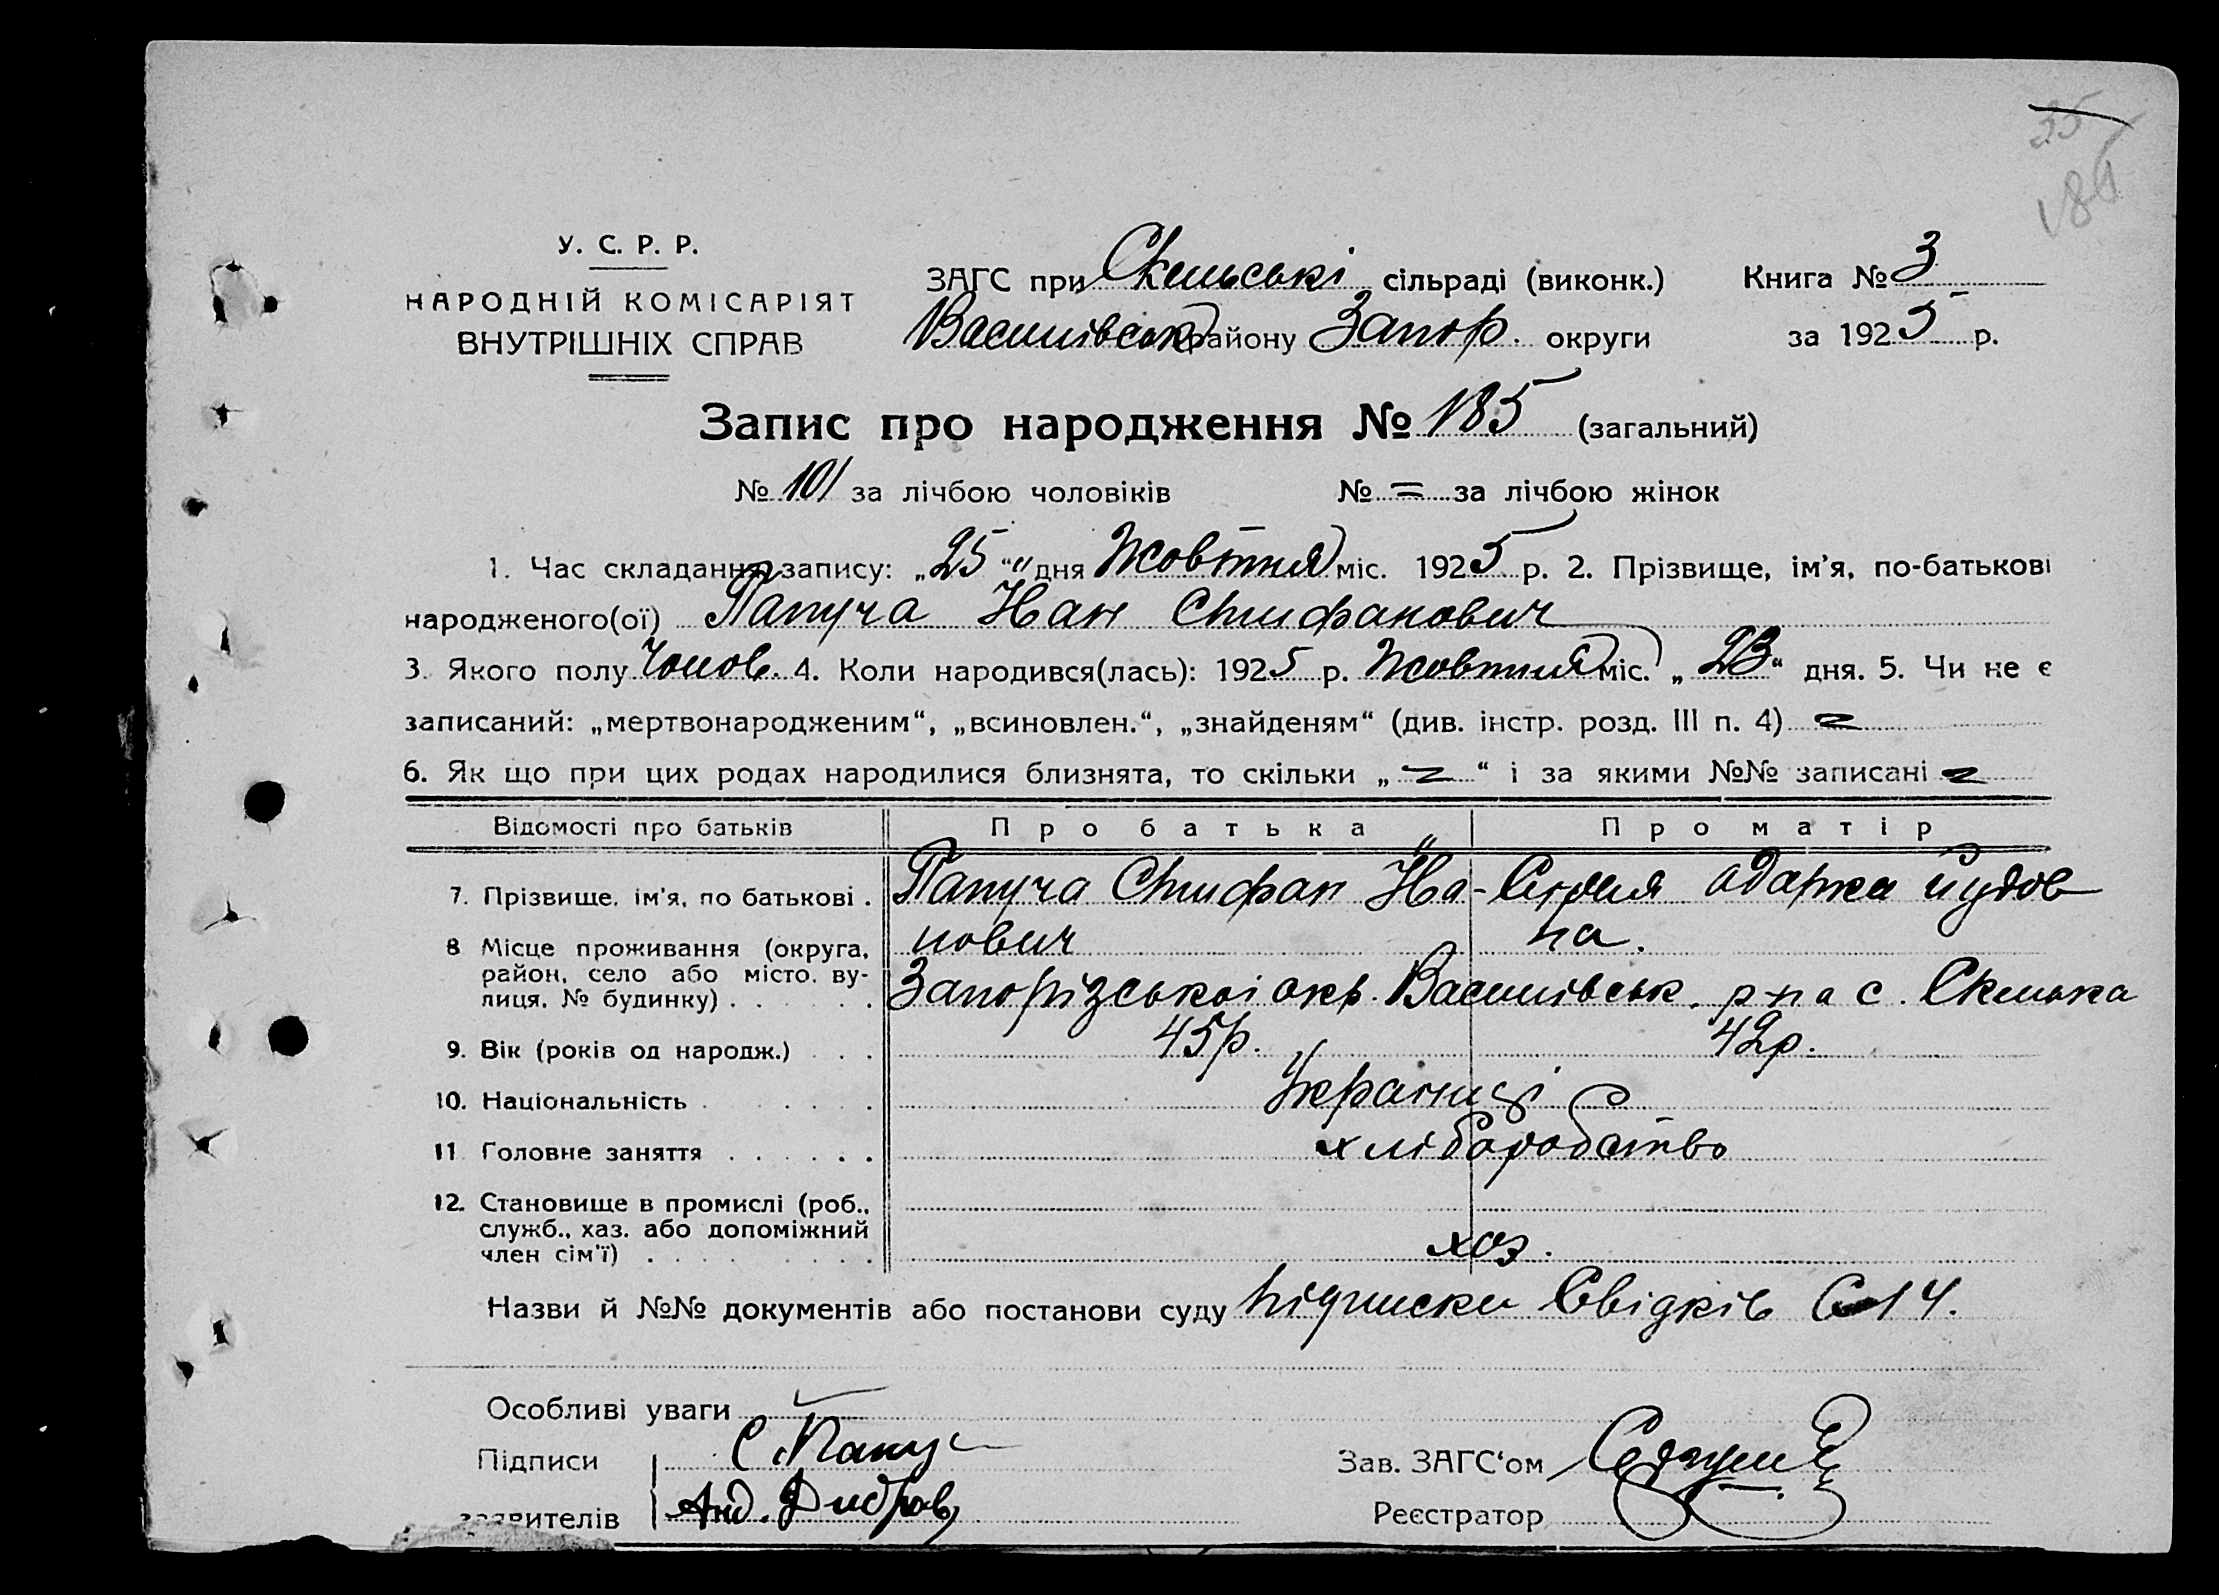 35
185
У. С. Р. Р.
НАРОДНІЙ КОМІСАРІЯТ
ВНУТРІШНІХ СПРАВ
ЗАГС при Скельські сільраді (виконк.) Книга № 3
Василівськ району Запор. округи за 1925 р.
Запис про народження № 185 (загальний)
№ 101 за лічбою чоловіків № = за лічбою жінок
1. Час складання запису: „25" дня Жовтня міс. 1925 р. 2. Прізвище, ім'я, по-батькові
народженого(ої) Папуча Іван Стифанович
3. Якого полу Чолов. 4. Коли народився(лась): 1925 р. Жовтня міс. „23" дня. 5. Чи не є
записаний: „мертвонародженим", „всиновлен.", „знайденям" (див. інстр. розд. III п. 4) =
6. Як що при цих родах народилися близнята, то скільки „=" і за якими №№ записані =
Відомості про батьків Про батька Про матір
7. Прізвище, ім'я, по батькові . Папуча Стифан Іва- Одарка Иудов
нович на.
8 Місце проживання (округа,
район, село або місто, ву-
лиця, № будинку) . . . . Запорізської окр. Василівськ. р-на с. Скелька
9. Вік (років од народж.) . . . 45р. 42р.
10. Національність . . . . . Українці
11 Головне заняття . . . . . . хліборобство
12. Становище в промислі (роб.,
служб., хаз. або допоміжний
член сім'ї) . . . . . . хоз.
Назви й №№ документів або постанови суду підписки Свідків С 14.
Особливі уваги
Підписи С Папуч
заявителів Анд.
Зав. ЗАГС'ом
Реєстратор